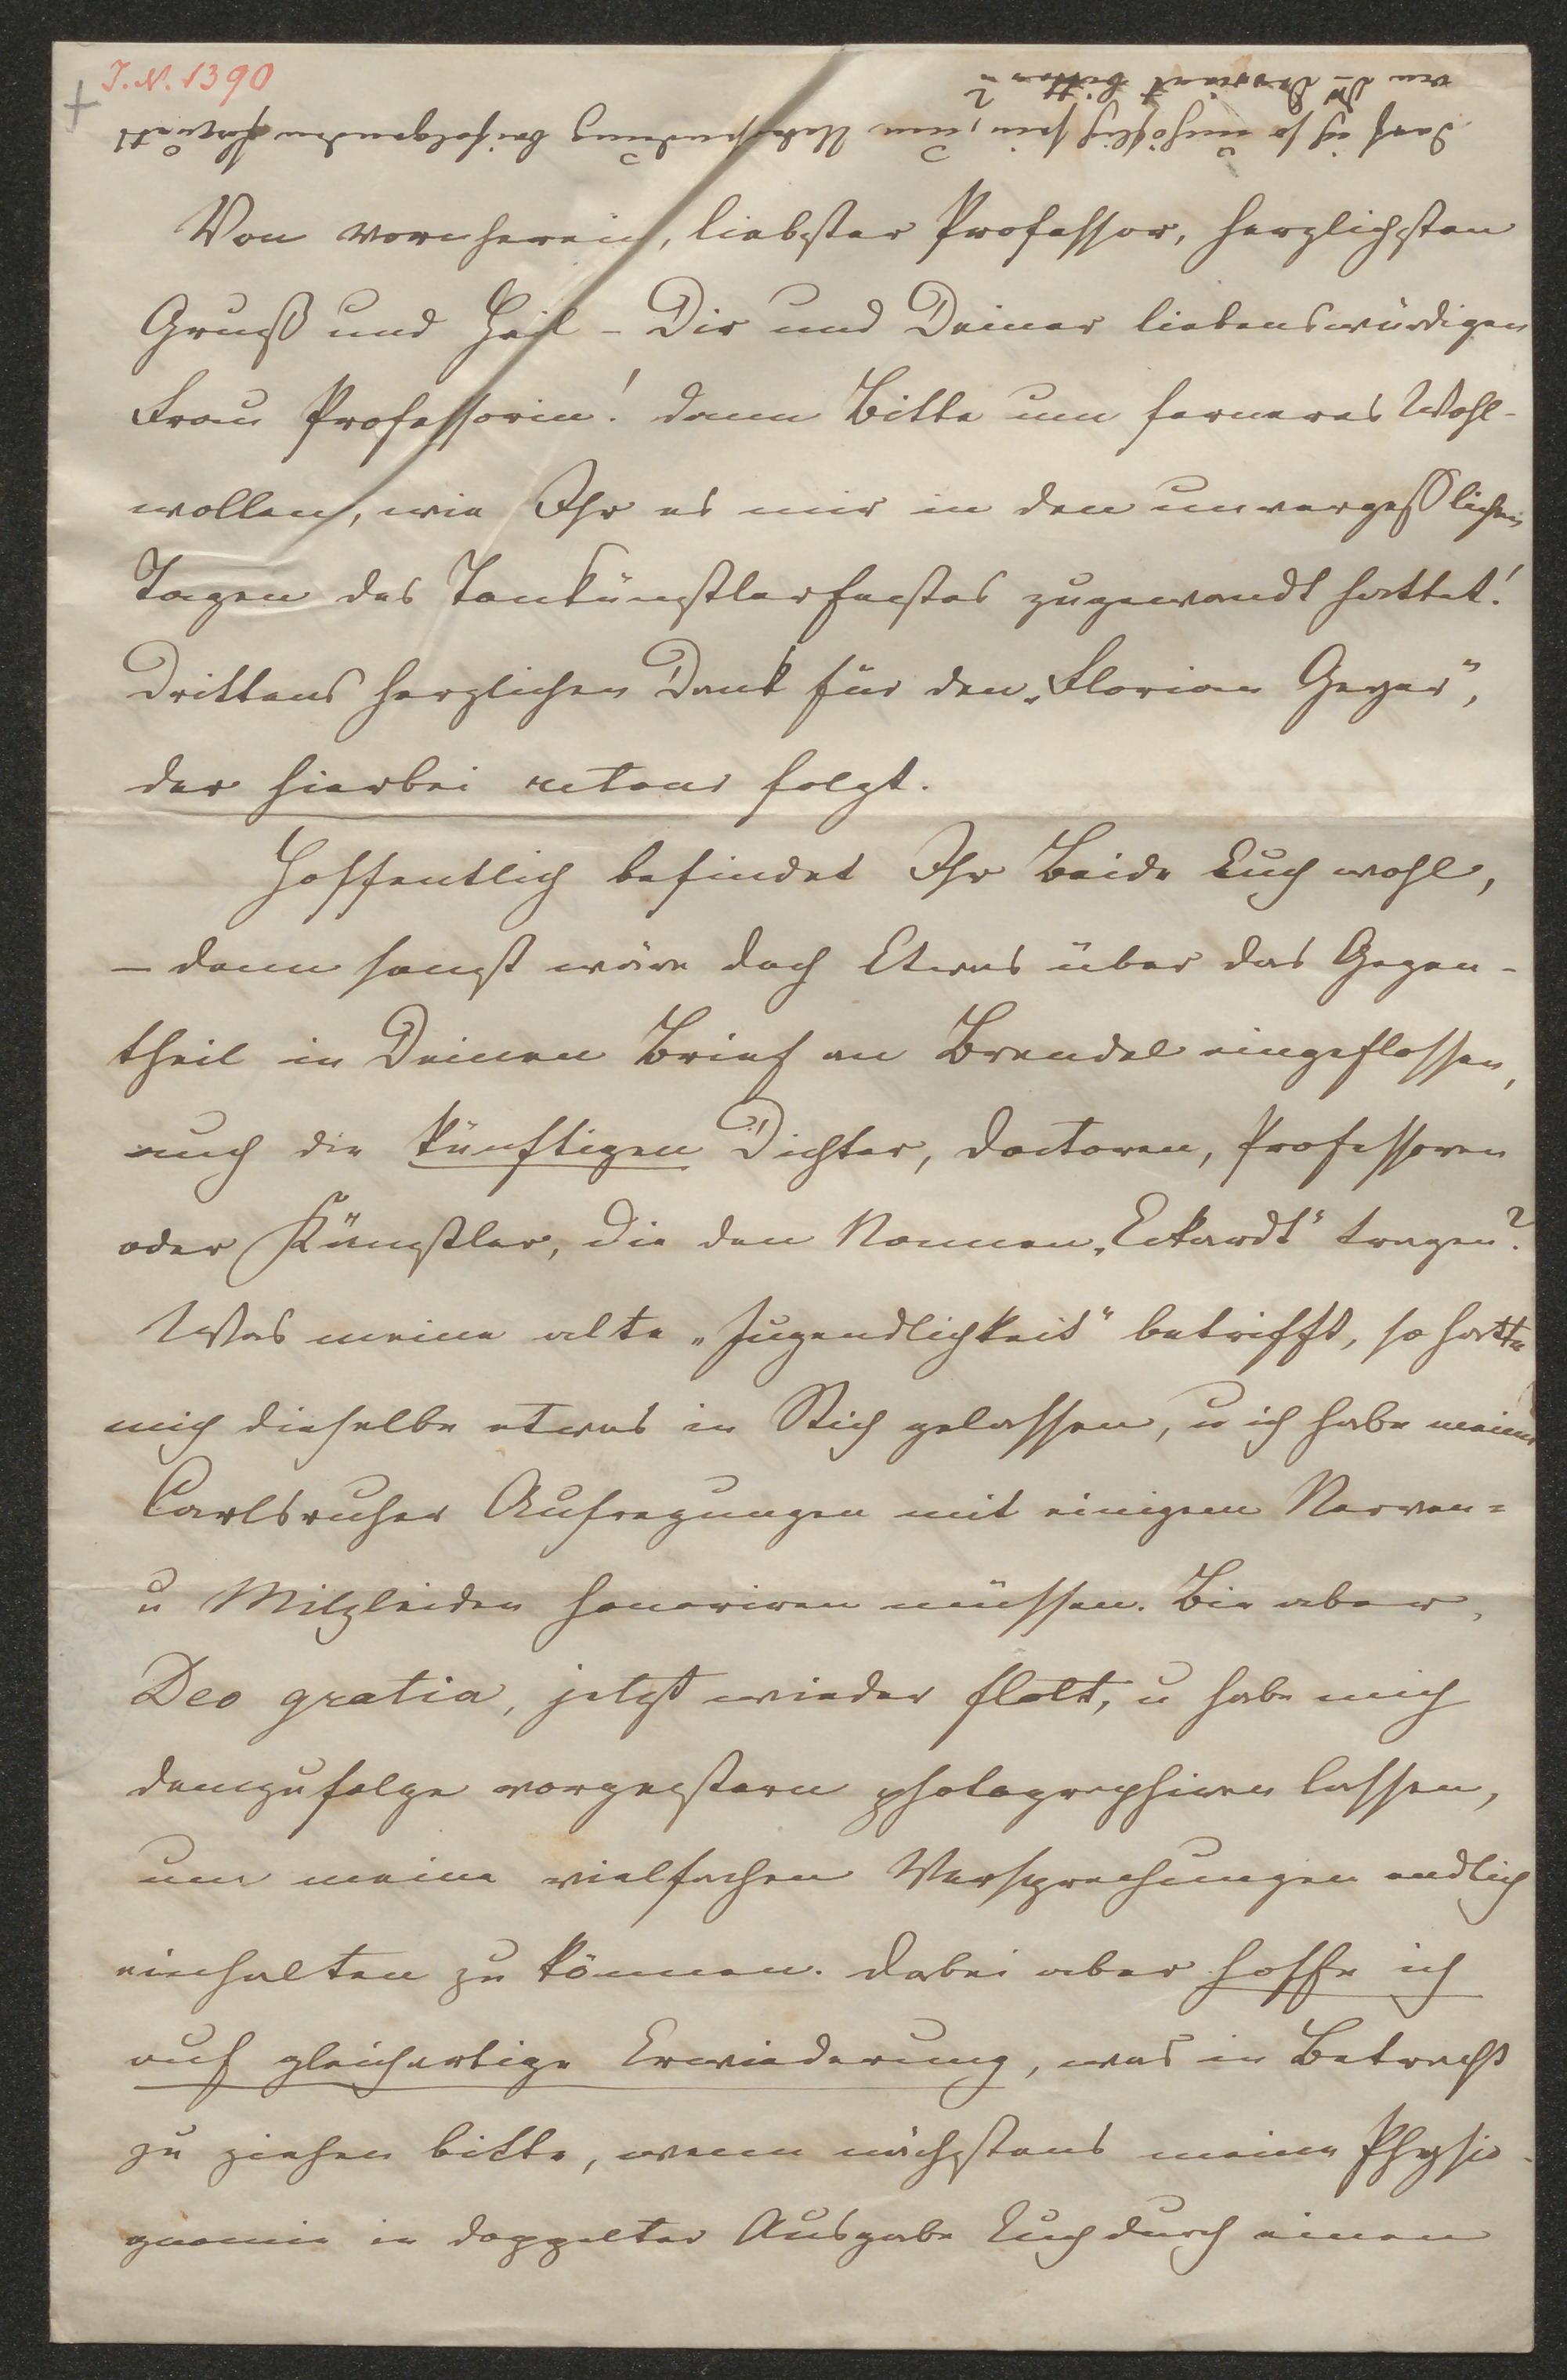 J. N. 1390
Darf ich so unhöflich sein, um Uebersendung beifolgenden Packets
an Dr Devrient bitten?
Von vornherein, liebster Professor, herzlichsten
Gruß und Heil – Dir und Deiner liebenswürdigen
Frau Professorin! dann Bitte um ferneres Wohl-
wollen, wie Ihr es mir in den unvergeßlichen
Tagen des Tonkünstlerfestes zugewandt hattet!
Drittens herzlichen Dank für den „Florian Geyer",
der hierbei retour folgt.
Hoffentlich befindet Ihr Beide Euch wohl,
– denn sonst wäre doch Etwas über das Gegen-
theil in Deinen Brief an Brendel eingeflossen,
auch die künftigen Dichter, Doctoren, Professoren
oder Künstler, die den Namen „Eckardt" tragen?
Was meine alte „Jugendlichkeit" betrifft, so hatte
mich dieselbe etwas in Stich gelassen, u ich habe meine
Carlsruher Aufregungen mit einigem Nerven=
u Milzleiden honoriren müssen. Bin aber,
Deo gratia, jetzt wieder flott, u habe mich
demzufolge vorgestern photographiren lassen,
um meine vielfachen Versprechungen endlich
einhalten zu können. Dabei aber hoffe ich
auf gleichartige Erwiederung, was in Betracht
zu ziehen bitte, wenn nächstens meine Physio-
gnomie in doppelter Ausgabe Euch durch einen